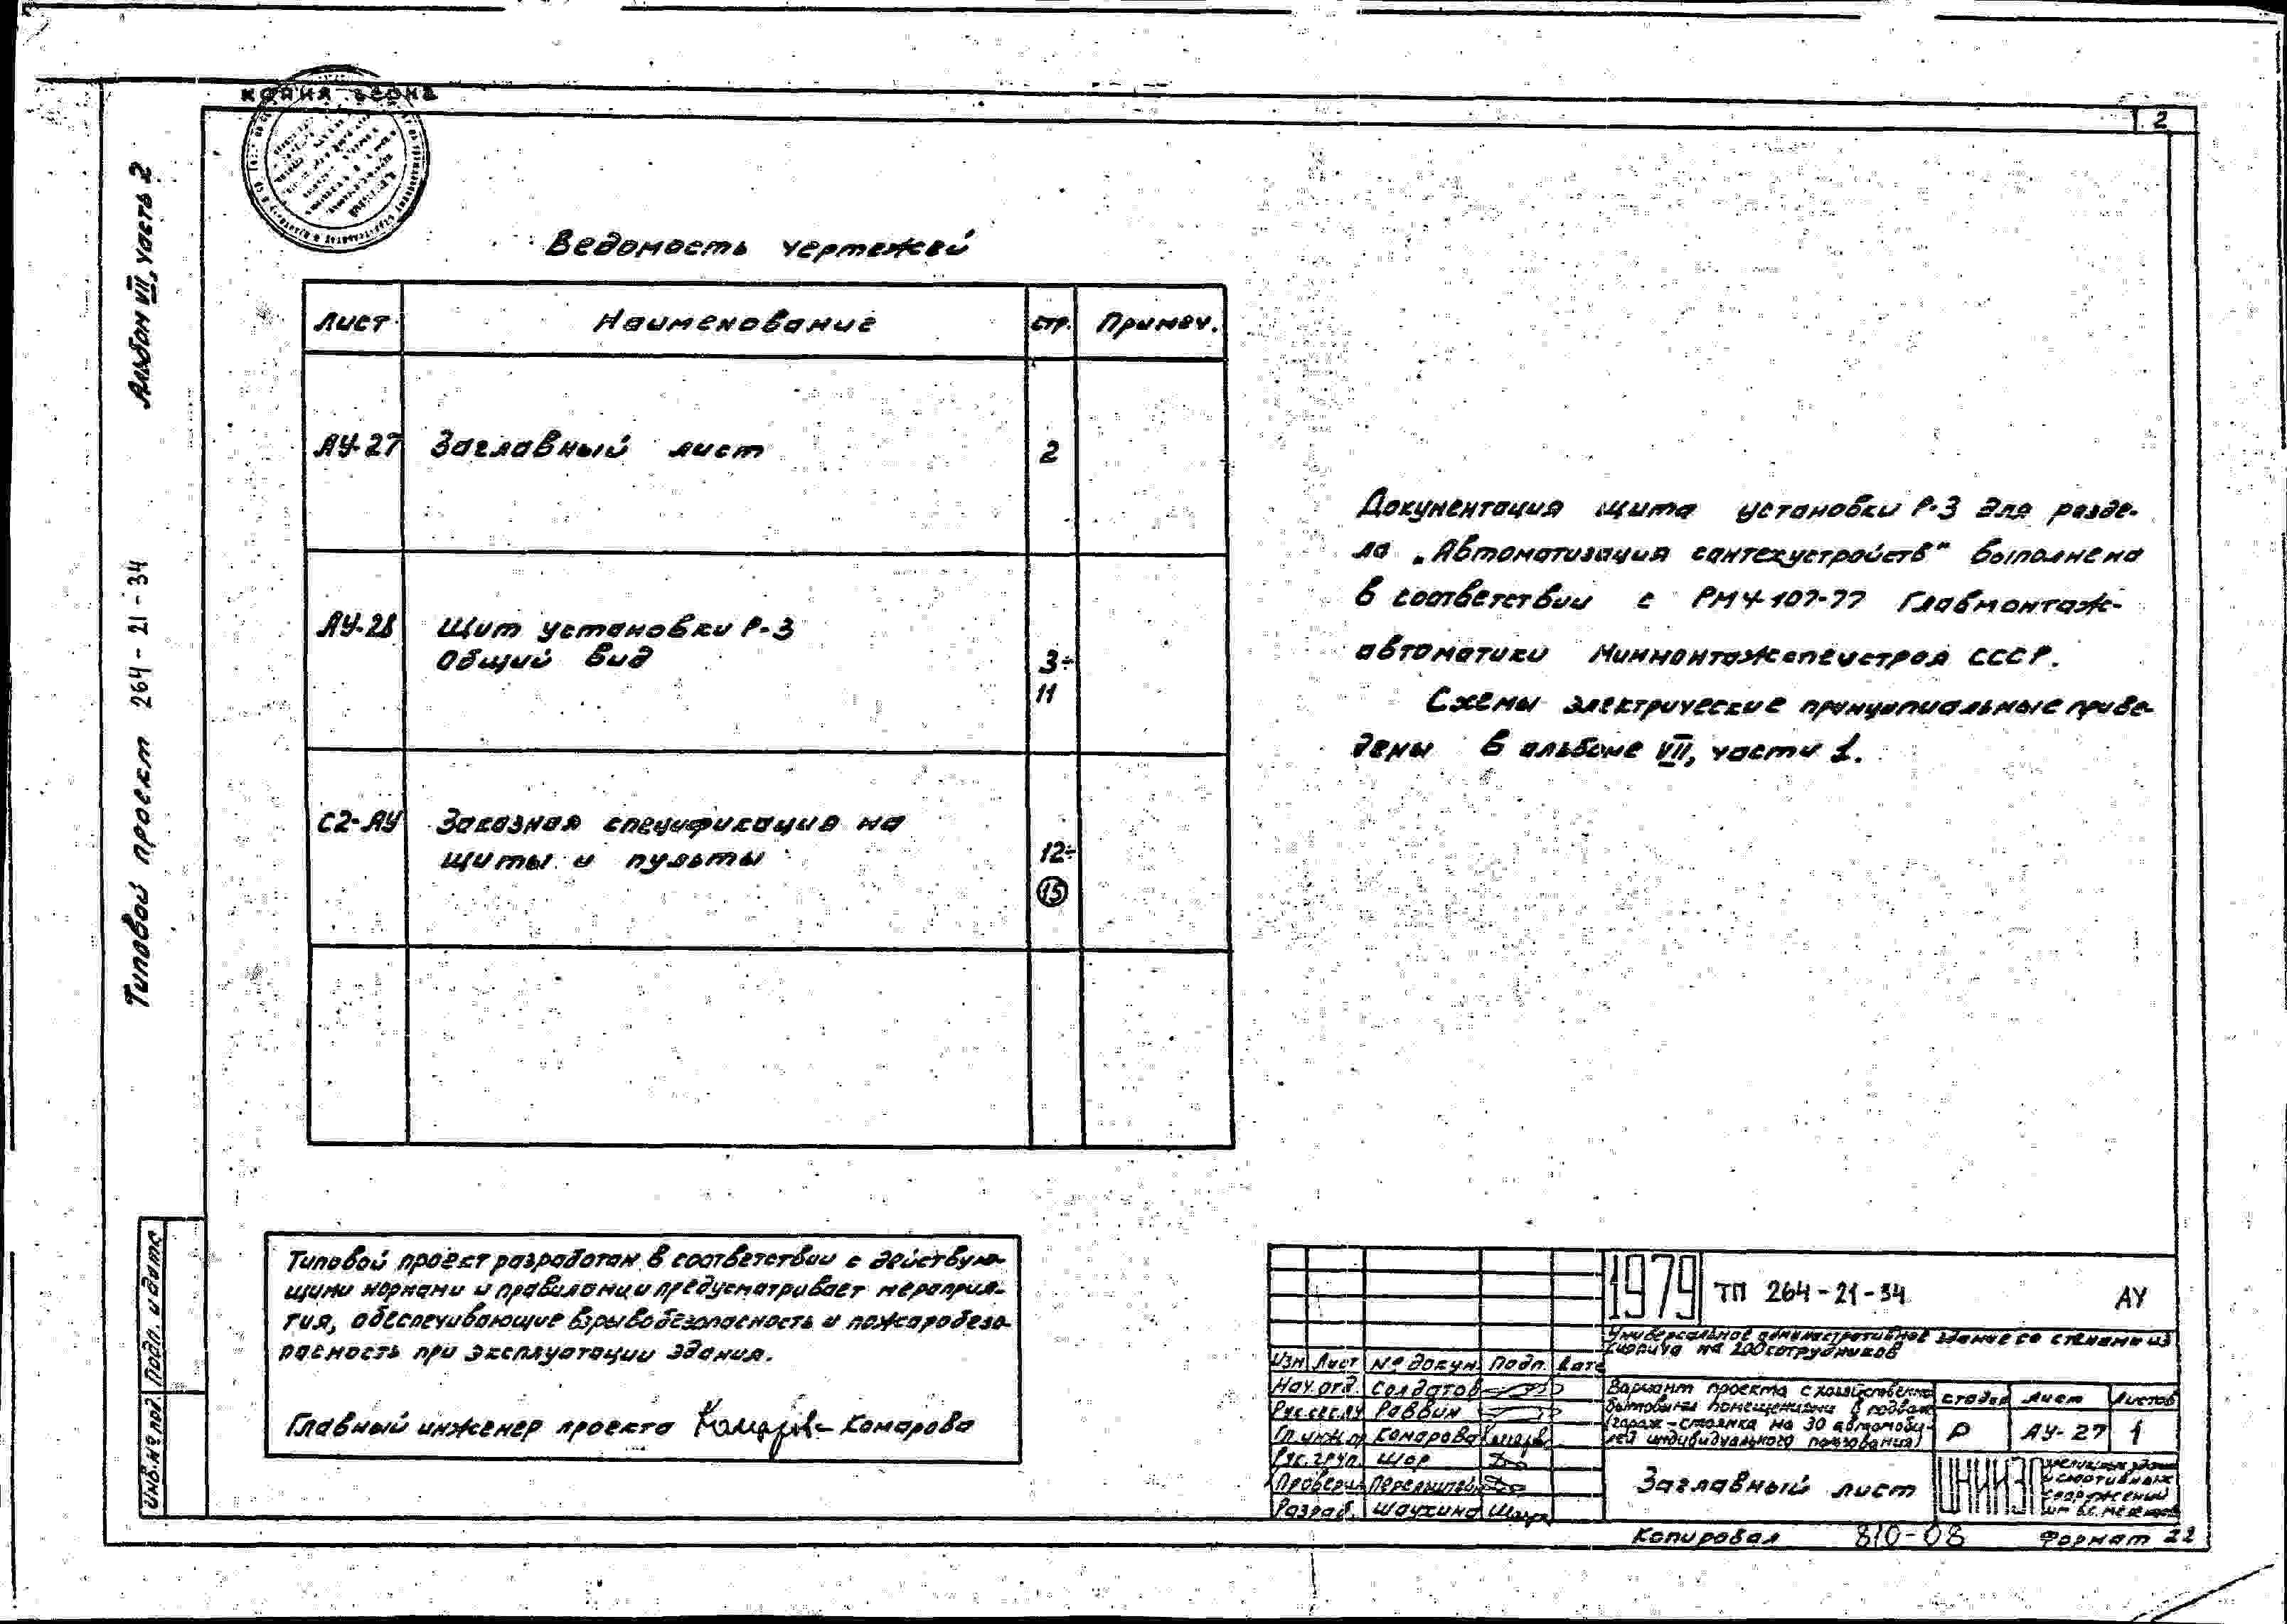 КОПИЯ ВЕРНА
2
Альбом VII, часть 2
Типовой проект 264-21-34
Ведомость чертежей
Лист Наименование стр. Примеч.
АУ-27 Заглавный лист 2
АУ-28 Щит установки Р-3
Общий вид 3÷
11
С2-АУ Заказная спецификация на
щиты и пульты 12÷
15
Документация щита установки Р-3 для разде-
ла „Автоматизация сантехустройств" выполнена
в соответствии с РМ4-107-77 Главмонтаж-
автоматики Минмонтажспецстроя СССР.
Схемы электрические принципиальные приве-
дены в альбоме VII, части 1.
Типовой проект разработан в соответствии с действую-
щими нормами и правилами и предусматривает мероприя-
тия, обеспечивающие взрывобезопасность и пожаробезо-
пасность при эксплуатации здания.
Главный инженер проекта Комарова
Инв.№ подл. Подп. и дата
1979 ТП 264-21-34 АУ
Универсальное административное здание со стенами из
кирпича на 200 сотрудников
Изм Лист № докум. Подп. Дата
Нач. отд. Солдатов
Раввин
Гл.инж.пр Комарова
Рук.груп. Шор
Проверил
Разраб. Шаухина
Вариант проекта с хозяйственно
бытовыми помещениями в подвале
(гараж-стоянка на 30 автомоби-
лей индивидуального пользования)
стадия Лист Листов
Р АУ-27 1
Заглавный лист
ЦНИИЭП
зрелищных зданий
и спортивных
сооружений
им. Б.С. Мезенцева
Копировал 810-08 Формат 22